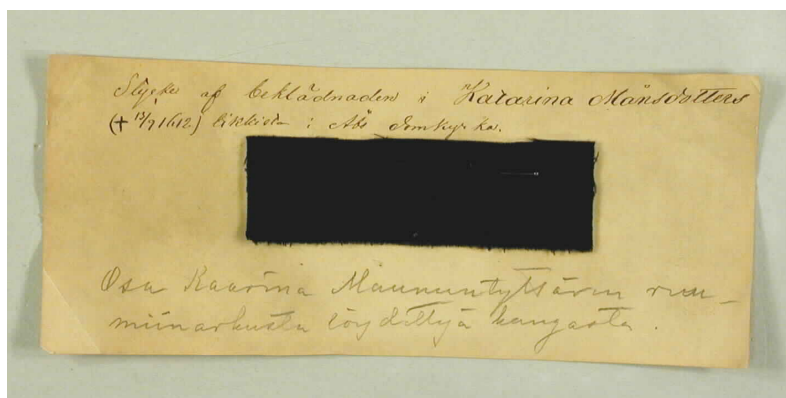 Stycke af beklädnaden i Katarina Månsdotters
(† 13/9 1612) likkista i Åbo Domkyrka.
Osa Kaarina Maununtyttären ruu-
miinarkusta löydettyä kangasta.